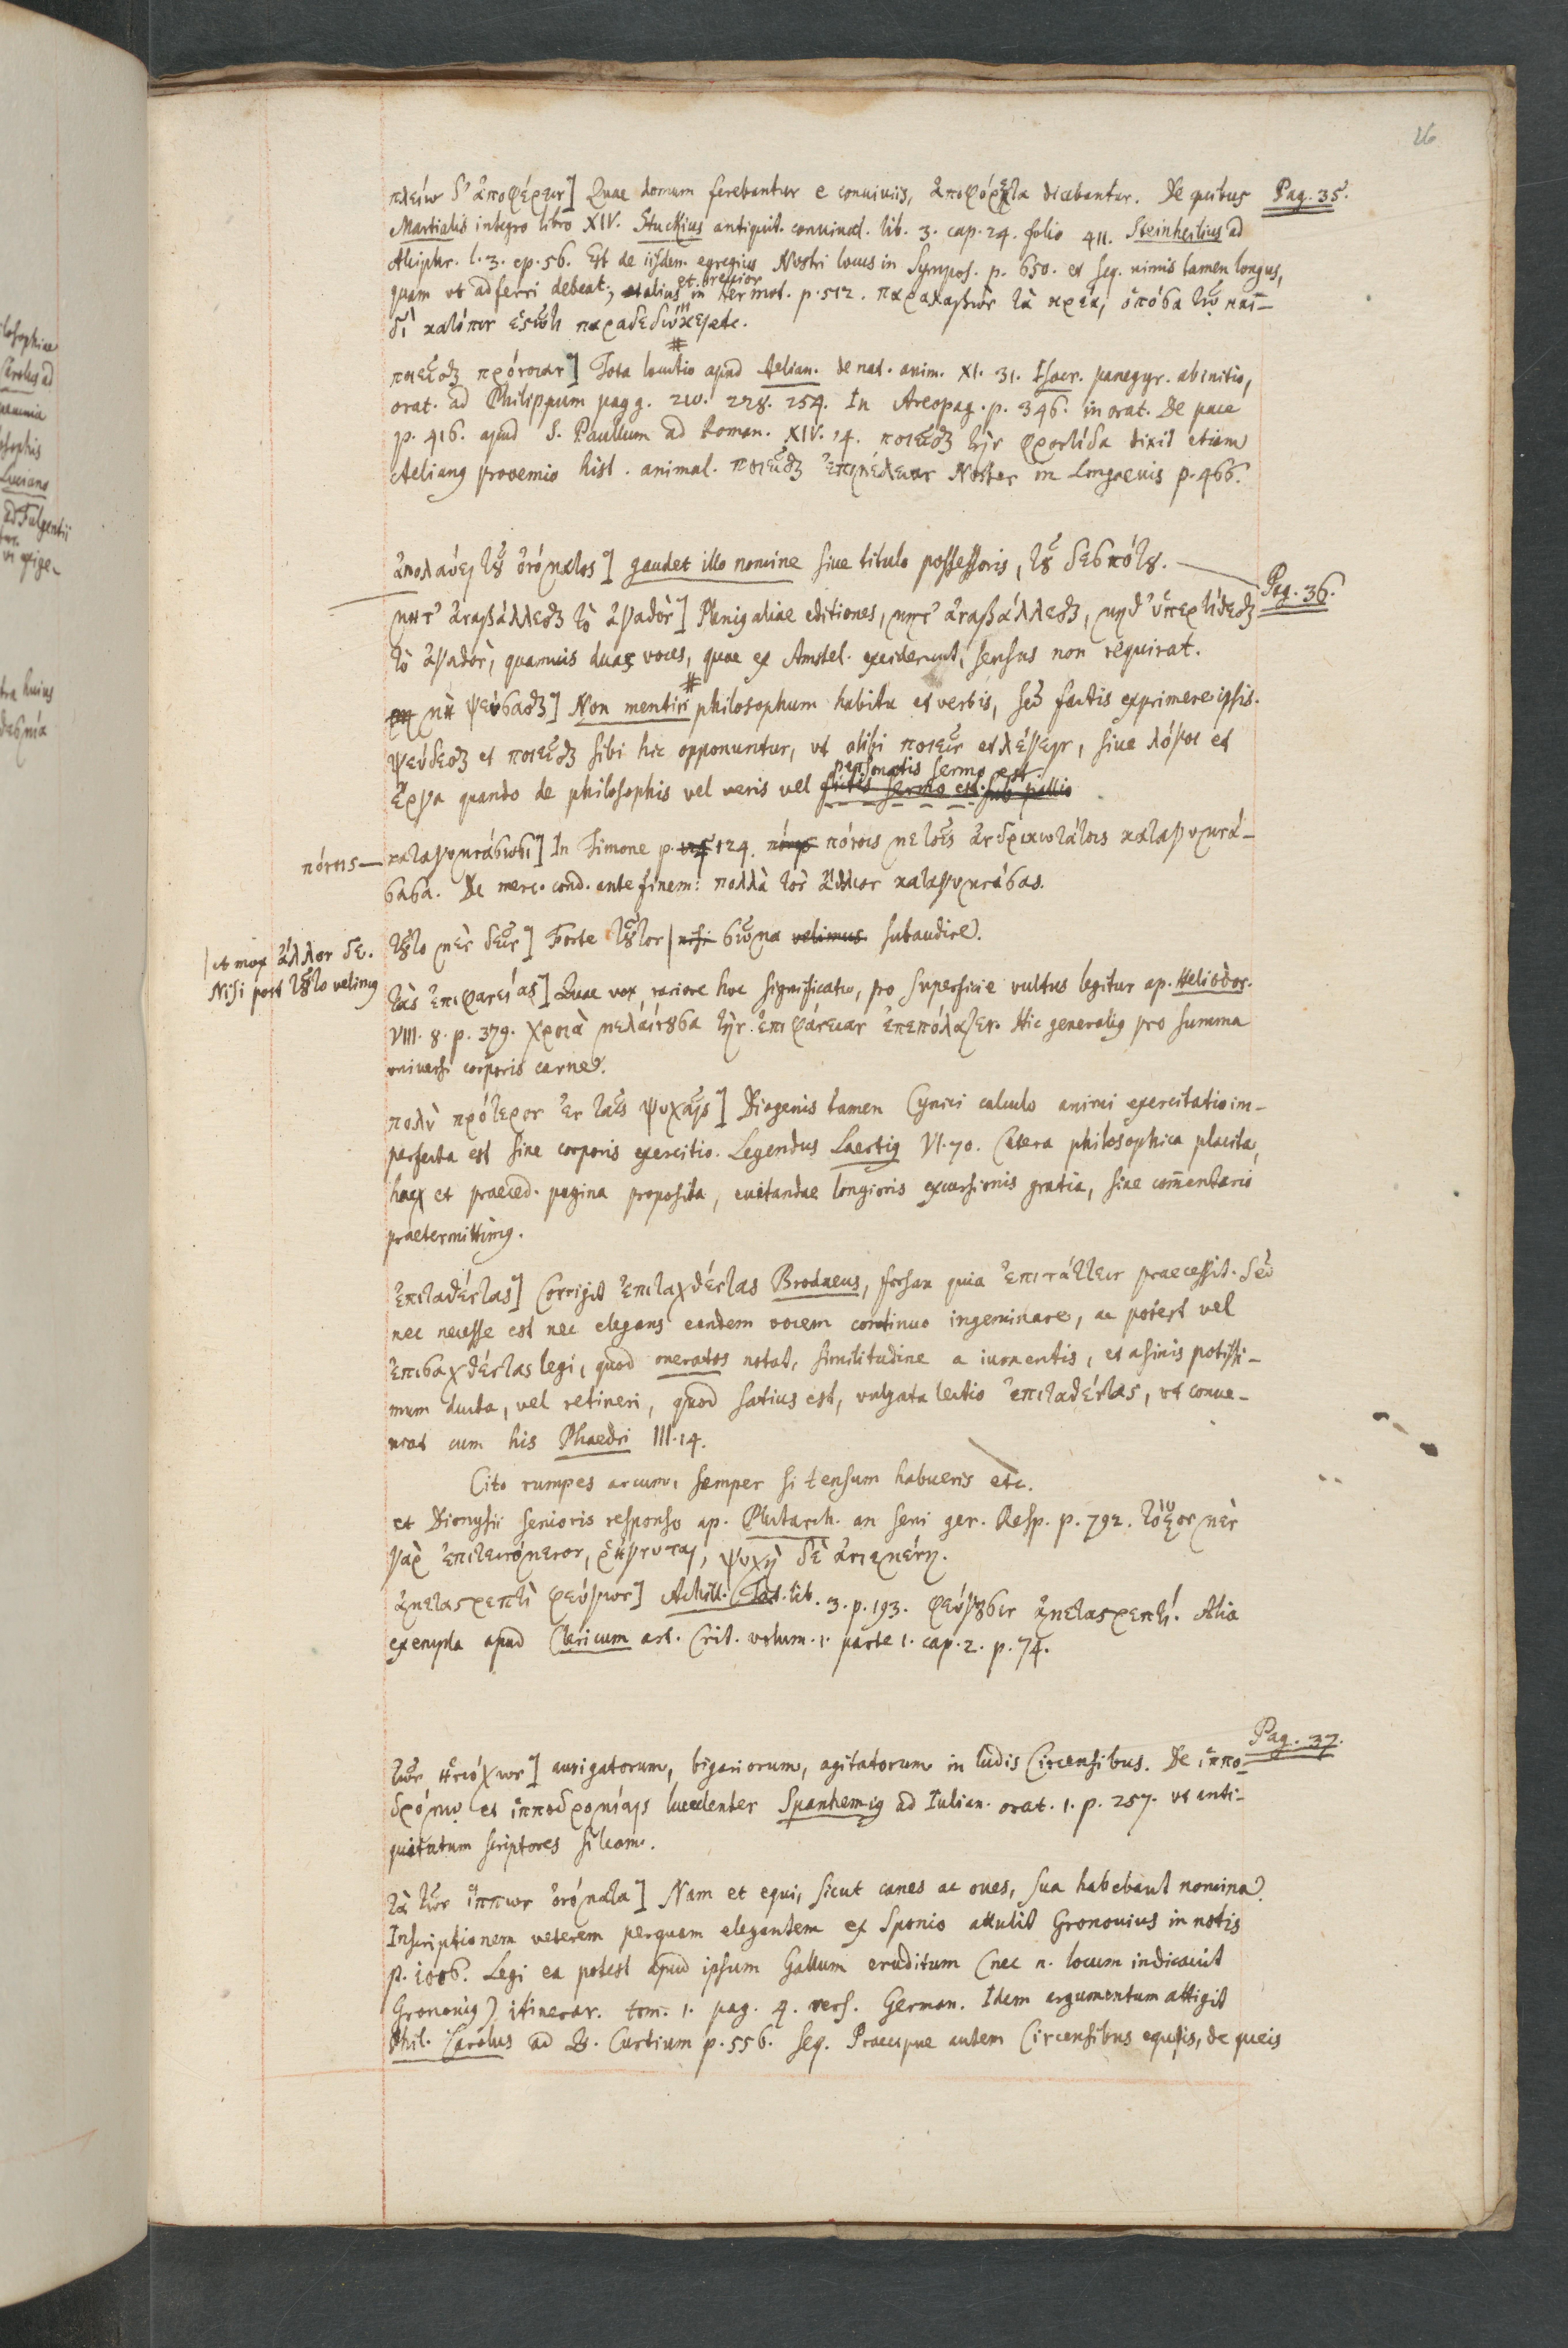 26
πλείω δ' ἀποφέρειν] Quae domum ferebantur e conuiuiis, ἀποφόρητα dicebantur. De quibus Pag. 35.
Martialis integro libro XIV. Stuckius antiquit. conuiual. lib. 3. cap. 24. folio 411. Steinheilius ad
Alciphr. l. 3. ep. 56. Est de iisdem egregius Nostri locus in Sympos. p. 650. et seq. nimis tamen longus,
quam vt adferri debeat; et alius et breuior in Hermot. p. 512. παραλαβὼν τὰ κρέα, ὁπόσα τῷ παι-
δὶ κατόπιν ἑστῶτι παραδεδώκει etc.
ποιεῖσθαι πρόνοιαν] Tota locutio apud Aelian. de nat. anim. XI. 31. Isocr. panegyr. ab initio,
orat. ad Philippum pagg. 210. 228. 254. In Areopag. p. 346. in orat. De pace
p. 416. apud S. Paullum ad Roman. XIV. 14. ποιεῖσθαι τὴν φροντίδα dixit etiam
Aelianus prooemio hist. animal. ποιεῖσθαι ἐπιμέλειαν Noster in Longaeuis p. 466.
ἀπολαύει τοῦ ὀνόματος] gaudet illo nomine siue titulo possessoris, τοῦ δεσπότου.
Pag. 36.
μητ' ἀναβάλλεσθαι τὸ ἀγαθὸν] Plenig aliae editiones, μητ' ἀναβάλλεσθαι, μηδ' ὑπερτίθεσθαι
τὸ ἀγαθὸν, quamuis duas voces, quae ex Amstel. exciderunt, sensus non requirat.
μὴ ψεύσασθαι] Non mentiri philosophum habitu et verbis, sed factis exprimere ipsis.
ψεύδεσθαι et ποιεῖσθαι sibi hic opponuntur, vt alibi ποιεῖν et λέγειν, siue λόγοι et
ἔργα quando de philosophis vel veris vel personatis sermo est. fictis sermo est. sub pallio
πόνοις — καταγυμνάσωσι] In Timone p. 124. πόνοις με τοῖς ἀνδρικωτάτοις καταγυμνά-
σασα. De merc. cond. ante finem: πολλὰ τὸν ἄθλιον καταγυμνάσας.
τοῦτο μὲν δεῖν] Forte τοῦτον | nisi σῶμα velimus subaudire.
| et mox ἄλλον δε.
Nisi post τοῦτο velimus
τὰς ἐπιφανείας] Quae vox rariore hoc significatu, pro superficie vultus legitur ap. Heliodor.
VIII. 8. p. 379. χροιὰ μελαίνουσα τὴν ἐπιφάνειαν ἐπεπόλαζεν. Hic generalius pro summa
vniuersi corporis carne.
πολὺ πρότερον ἐν ταῖς ψυχαῖς] Diogenis tamen Cynici calculo animi exercitatio im-
perfecta est sine corporis exercitio. Legendus Laertius VI. 70. Cetera philosophica placita,
hac et praeced. pagina proposita, euitandae longioris excursionis gratia, sine com̄entario
praetermittimus.
ἐπιταθέντας] Corrigit ἐπιταχθέντας Brodaeus, forsan quia ἐπιτάττειν praecessit. Sed
nec necesse est nec elegans eandem vocem continuo ingeminare, ac potest vel
ἐπισαχθέντας legi, quod oneratos notat, similitudine a iumentis, et asinis potissi-
mum ducta, vel retineri, quod satius est, vulgata lectio ἐπιταθέντας, vt conue-
niat cum his Phaedri III. 14.
Cito rumpes arcum, semper si tensum habueris etc.
et Dionysii senioris responso ap. Plutarch. an seni ger. Resp. p. 792. τόξον μὲν
γὰρ ἐπιτεινόμενον, ῥήγνυται, ψυχὴ δὲ ἀνιεμένη.
ἀμεταστρεπτὶ φεύγων] Achill. Tat. lib. 3. p. 193. φεύγουσιν ἀμεταστρεπτί. Alia
exempla apud Clericum art. Crit. volum. 1. parte 1. cap. 2. p. 74.
Pag. 37.
τῶν ἡνιόχων] aurigatorum, bigariorum, agitatorum in ludis Circensibus. De ἱππο-
δρόμῳ et ἱπποδρομίαις luculenter Spanhemius ad Iulian. orat. 1. p. 257. vt anti-
quitatum scriptores sileam.
τὰ τῶν ἵππων ὀνόματα] Nam et equi, sicut canes ac oues, sua habebant nomina.
Inscriptionem veterem perquam elegantem ex Sponio attulit Gronouius in notis
p. 1006. Legi ea potest apud ipsum Gallum eruditum (nec n. locum indicauit
Gronouius) itinerar. tom. 1. pag. 4. vers. German. Idem argumentum attigit
Phil. Carolus ad Q. Curtium p. 556. seq. Praecipue autem Circensibus equis, de queis